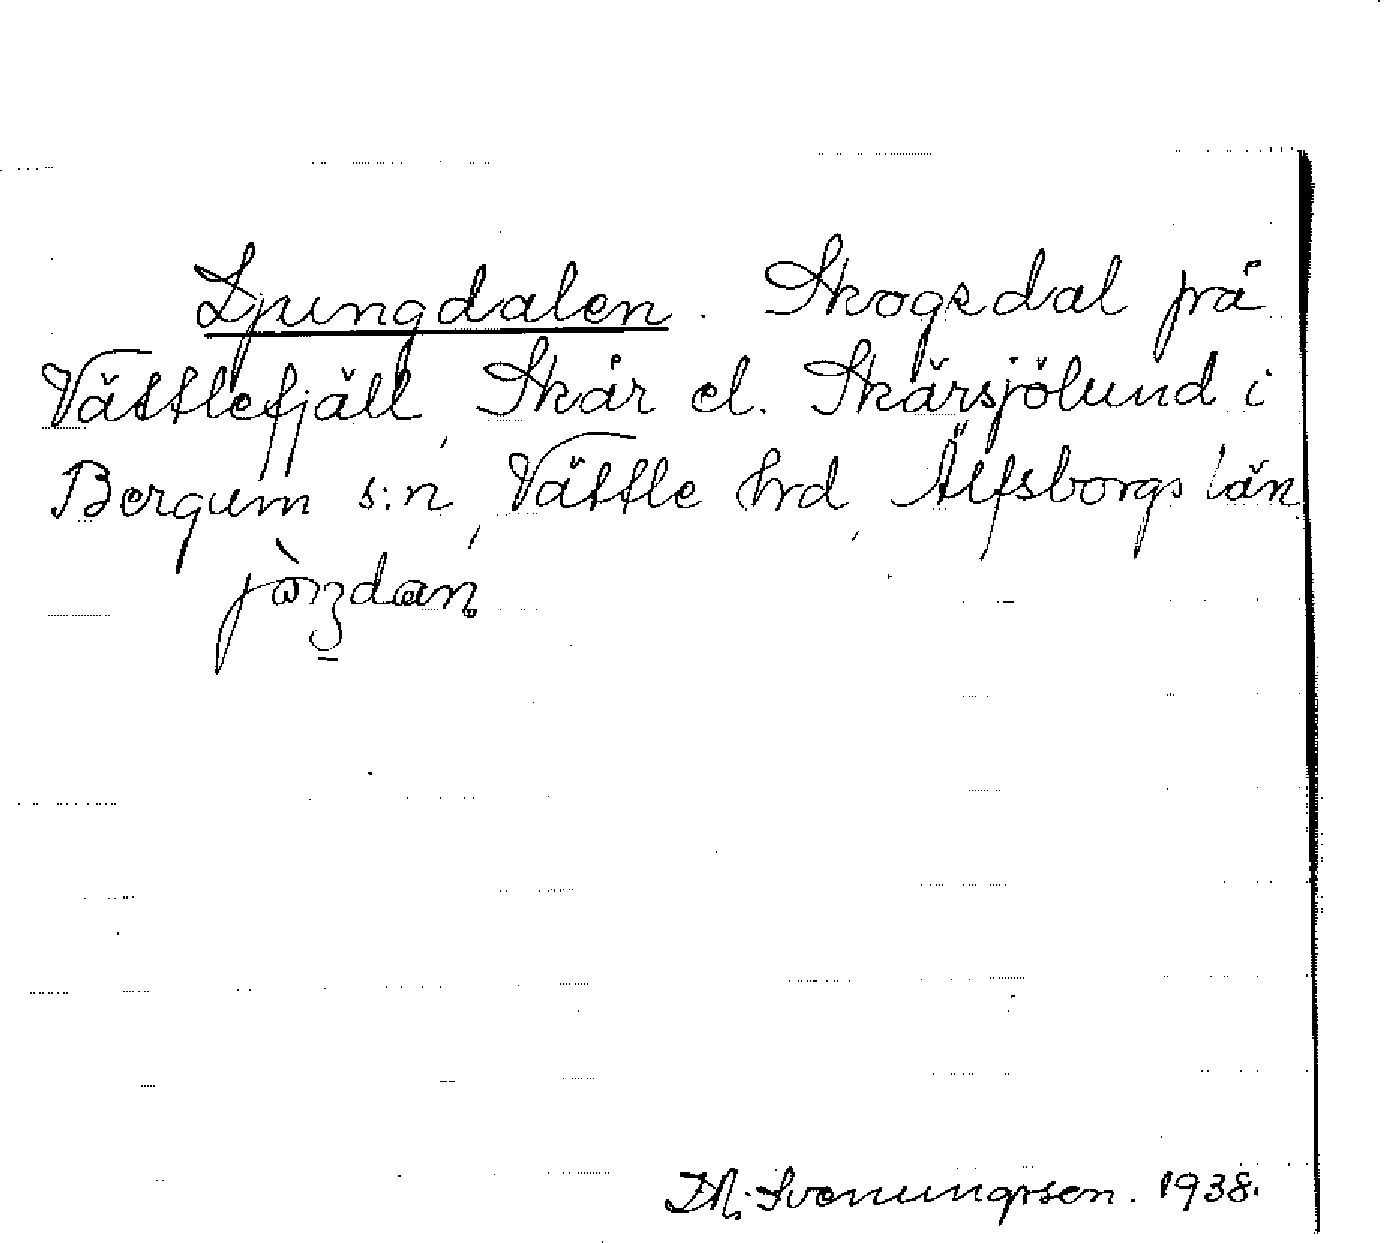 Ljungdalen. Skogsdal på
Vättlefjäll, Skår el. Skårsjölund i
Bergum s:n, Vättle hrd, Älfsborgs län
Th. Svenungsson. 1938.